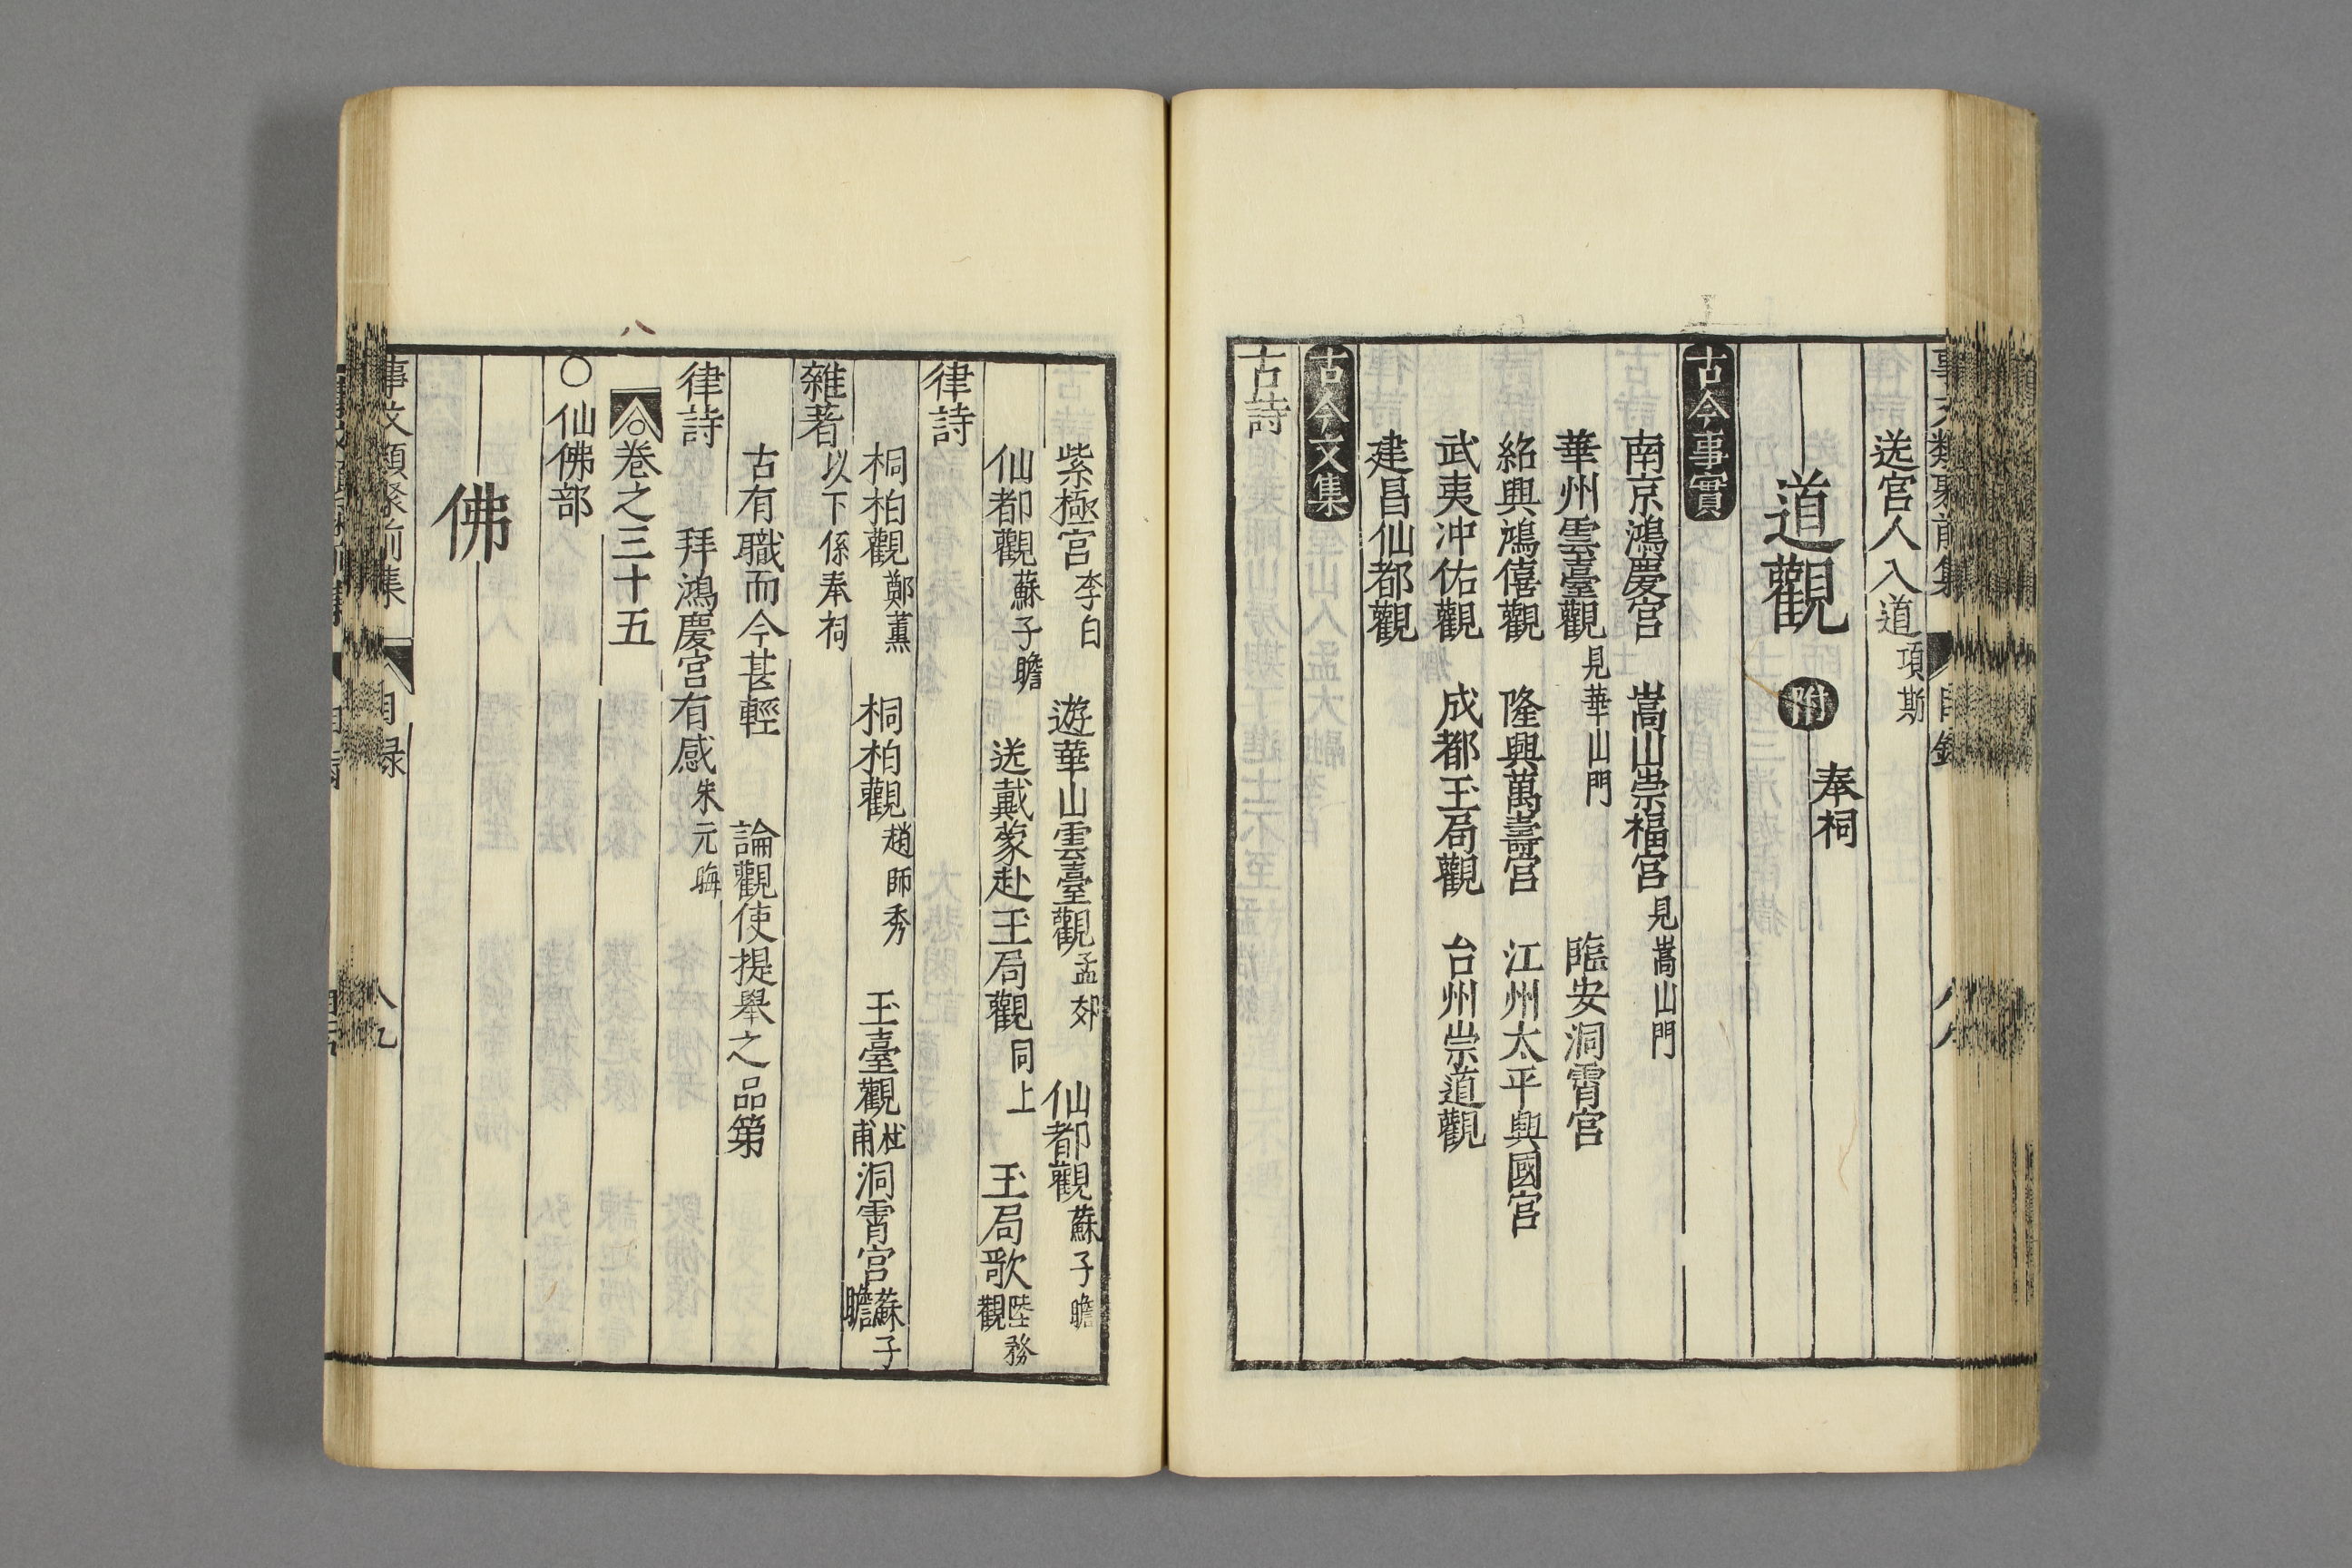 送宮人入道項斯
道觀 附 奉祠
古今事實
南京鴻慶宮 嵩山崇福宮見嵩山門
華州雲臺觀見華山門 臨安洞霄宮
紹興鴻僖觀 隆興萬壽宮 江州太平興國宮
武夷冲佑觀 成都玉局觀 台州崇道觀
建昌仙都觀
古今文集
古詩
紫極宮李白 遊華山雲臺觀孟郊 仙都觀蘇子瞻
仙都觀蘇子瞻 送戴蒙赴玉局觀同上 玉局歌陸務觀
律詩
桐柏觀鄭薰 桐柏觀趙師秀 玉臺觀杜甫 洞霄宮蘇子瞻
雜著以下係奉祠
古有職而今甚輕 論觀使提舉之品第
律詩 拜鴻慶宮有感朱元晦
卷之三十五
○仙佛部
佛
事文類聚前集 目録